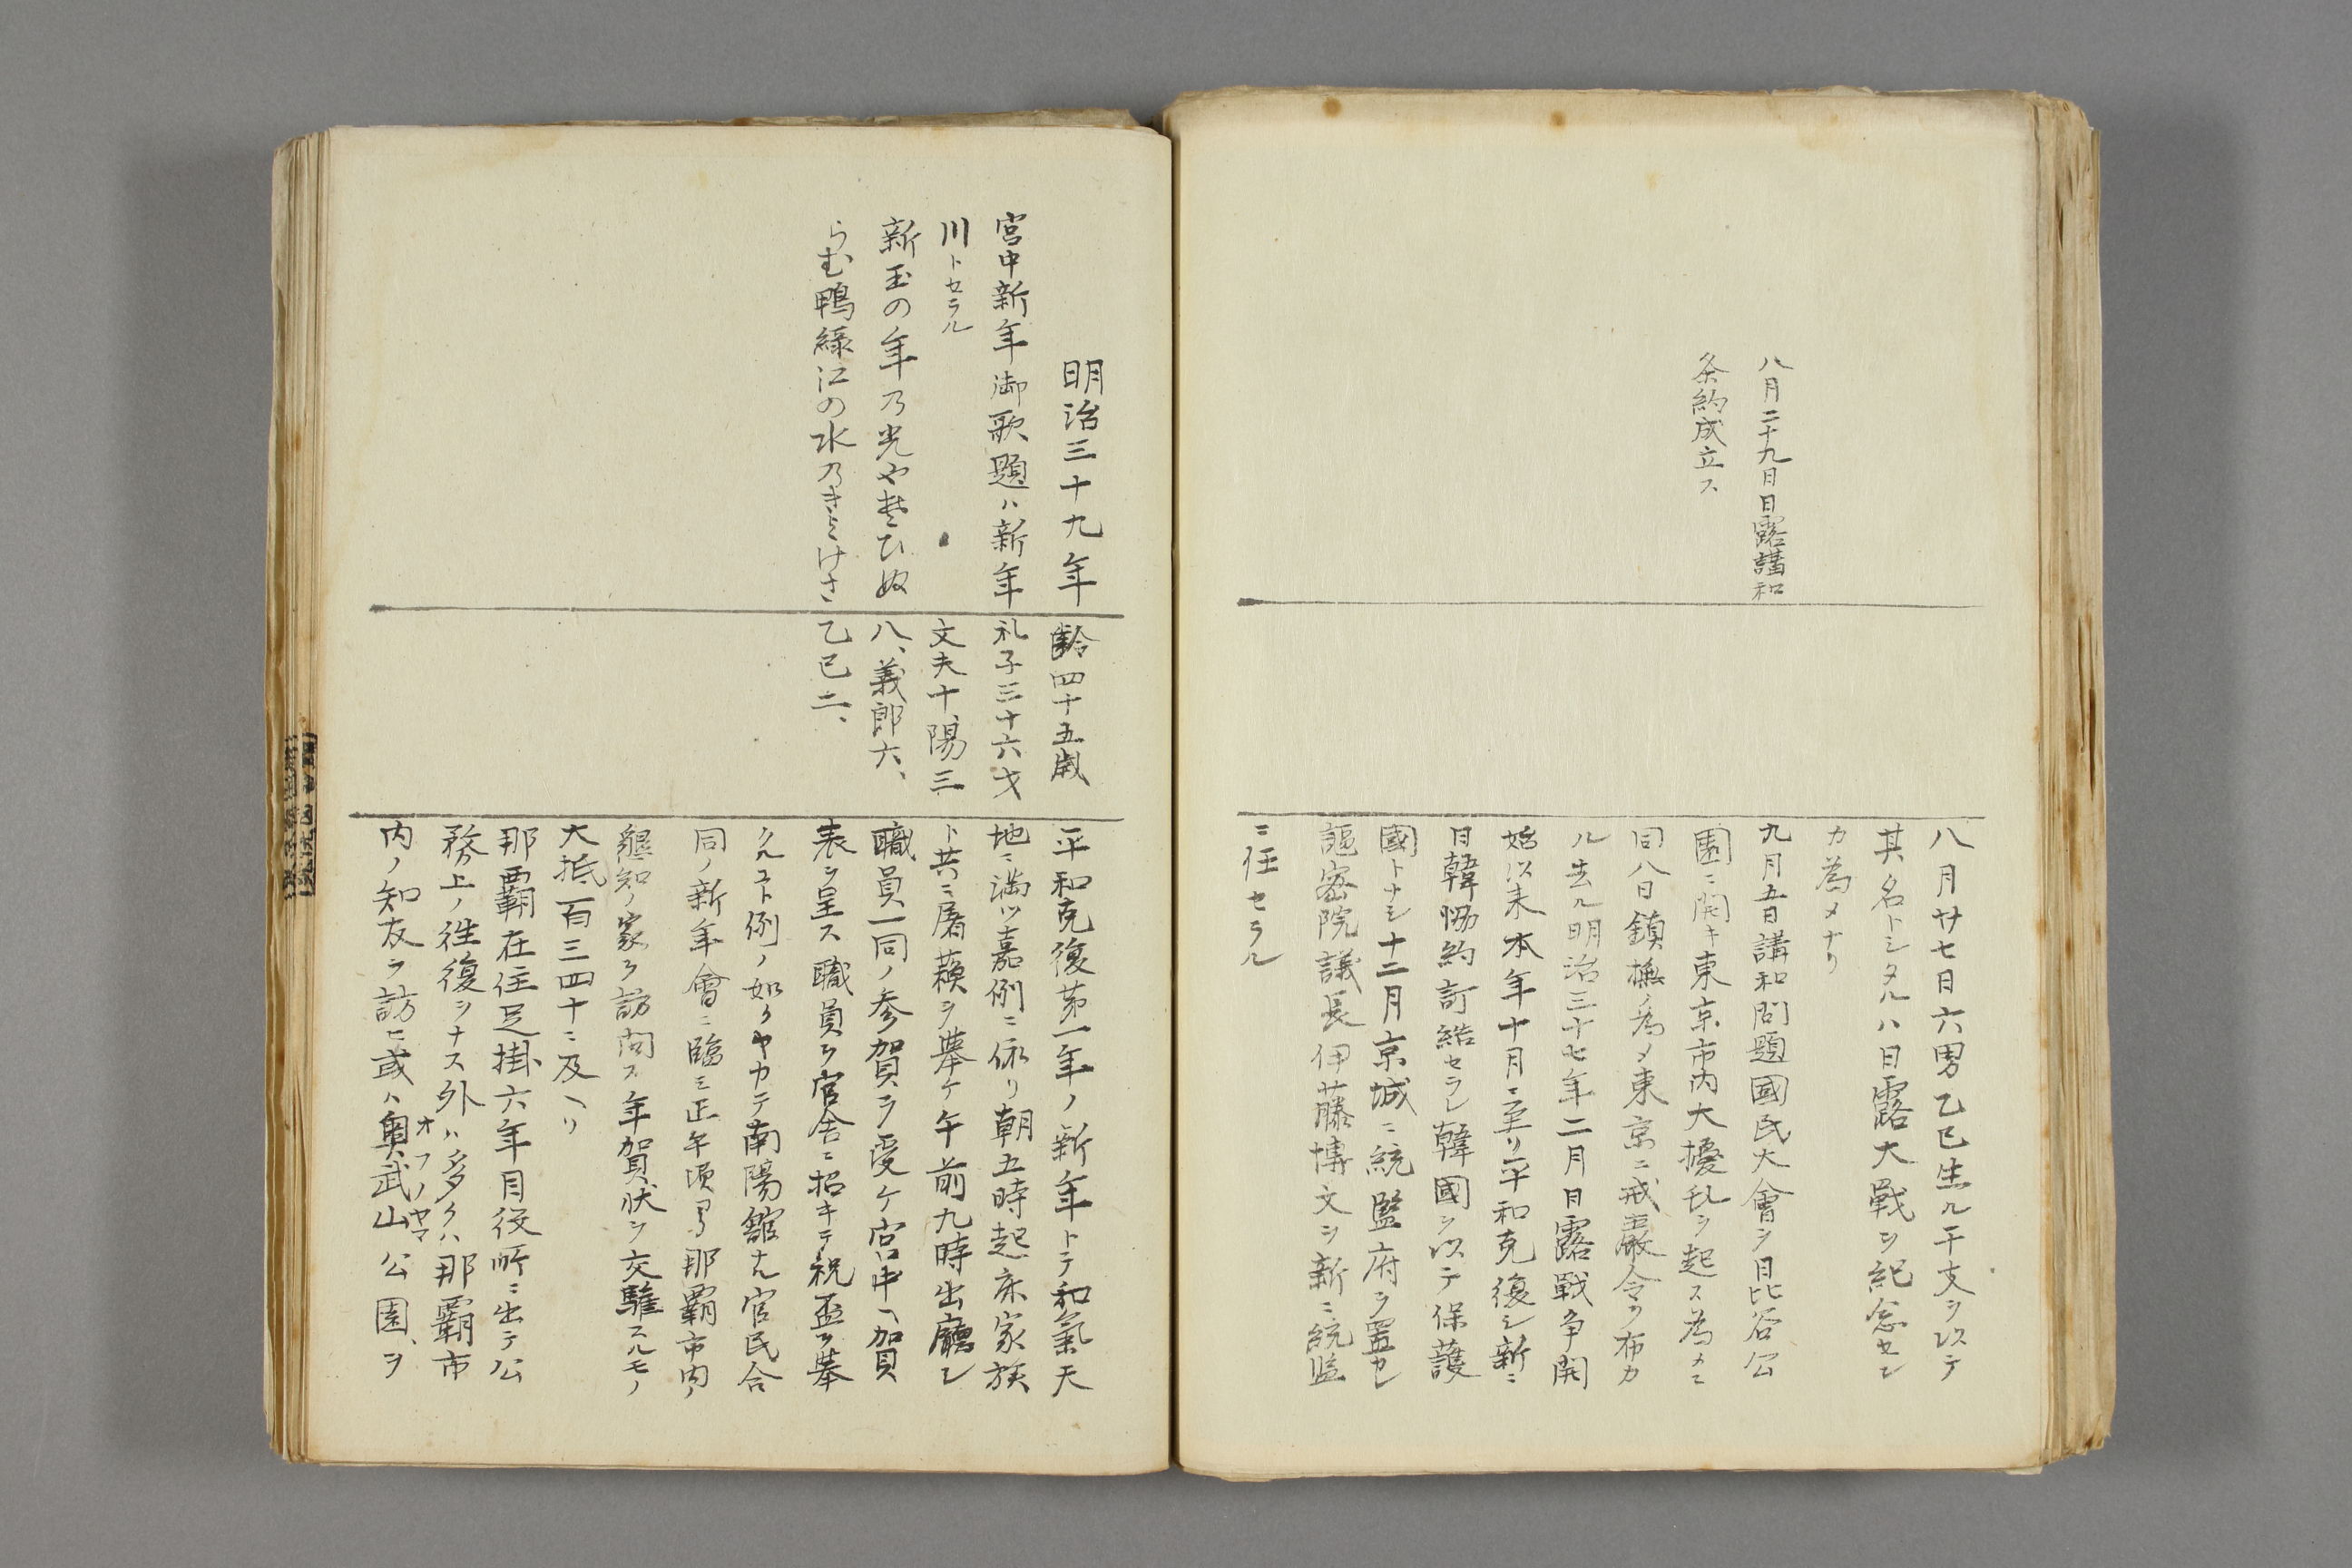 八月二十九日日露講和
条約成立ス
八月廿七日六男乙巳生ル干支ヲ以テ
其名トシタルハ日露大戰ヲ紀念セン
カ為メナリ
九月五日講和問題國民大會ヲ日比谷公
園ニ開キ東京市内大擾乱ヲ起ス為メニ
同八日鎮撫ノ為メ東京ニ戒嚴令ヲ布カ
ル去ル明治三十七年二月日露戰争開
始以来本年十月ニ至リ平和克復シ新ニ
日韓協約訂結セラレ韓國ヲ以テ保護
國トナシ十二月京城ニ統監府ヲ置カレ
樞密院議長伊藤博文ヲ新ニ統監
ニ任セラル
明治三十九年
宮中新年御歌題ハ新年
川トセラル
新玉の年乃光やそひぬ
らむ鴨緑江の水乃きよけさ
齢四十五歳
礼子三十六才
文夫十、陽三
八、義郎六、
乙巳二、
平和克復第一年ノ新年トテ和氣天
地ニ満ツ嘉例ニ依リ朝五時起床家族
ト共ニ屠蘓ヲ挙ケ午前九時出廳シ
職員一同ノ参賀ヲ受ケ宮中ヘ加賀
表ヲ呈ス職員ヲ官舎ニ招キテ祝盃ヲ挙
クルコト例ノ如クヤカテ南陽舘ナル官民合
同ノ新年會ニ臨ミ正午頃ヨリ那覇市内ノ
懇知ノ家ヲ訪問ス年賀状ヲ交驩スルモノ
大抵百三四十ニ及ヘリ
那覇在住足掛六年月役所ニ出テ公
務上ノ往復ヲナス外ハ多クハ那覇市
内ノ知友ヲ訪ヒ或ハ奥武山公園、ヲ
オフノヤマ